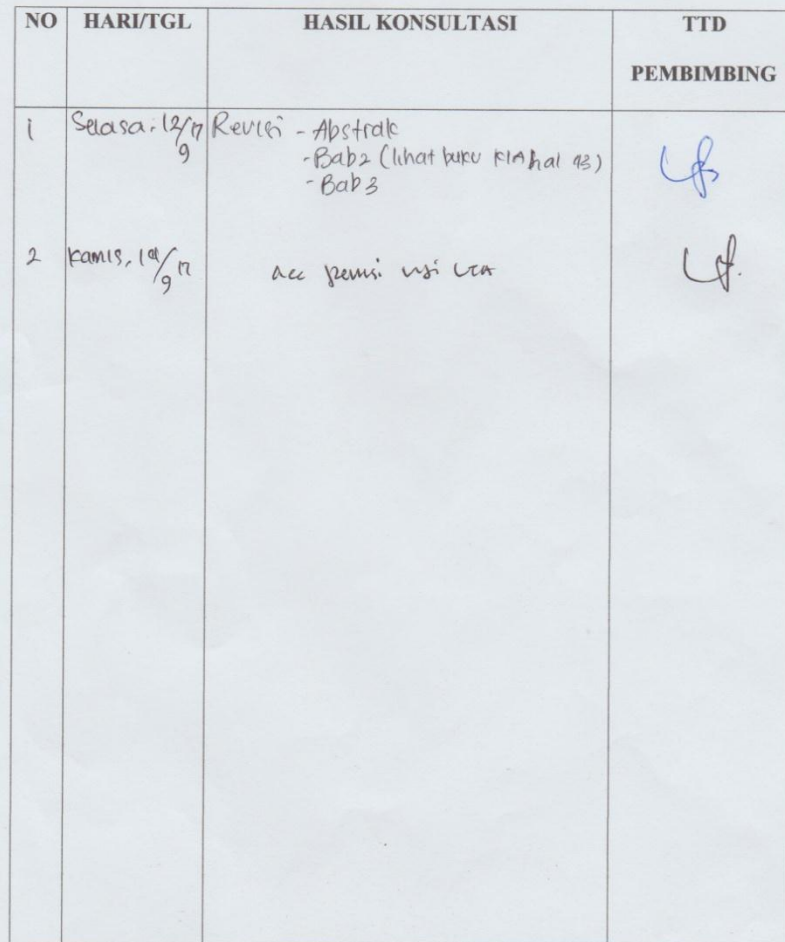 NO HARI/TGL HASIL KONSULTASI TTD
PEMBIMBING
1 Selasa, 12/9 17 Revisi - Abstrak
- Bab 2 (lihat buku KIA hal 93)
- Bab 3
2 Kamis, 14/9 17 acc revisi